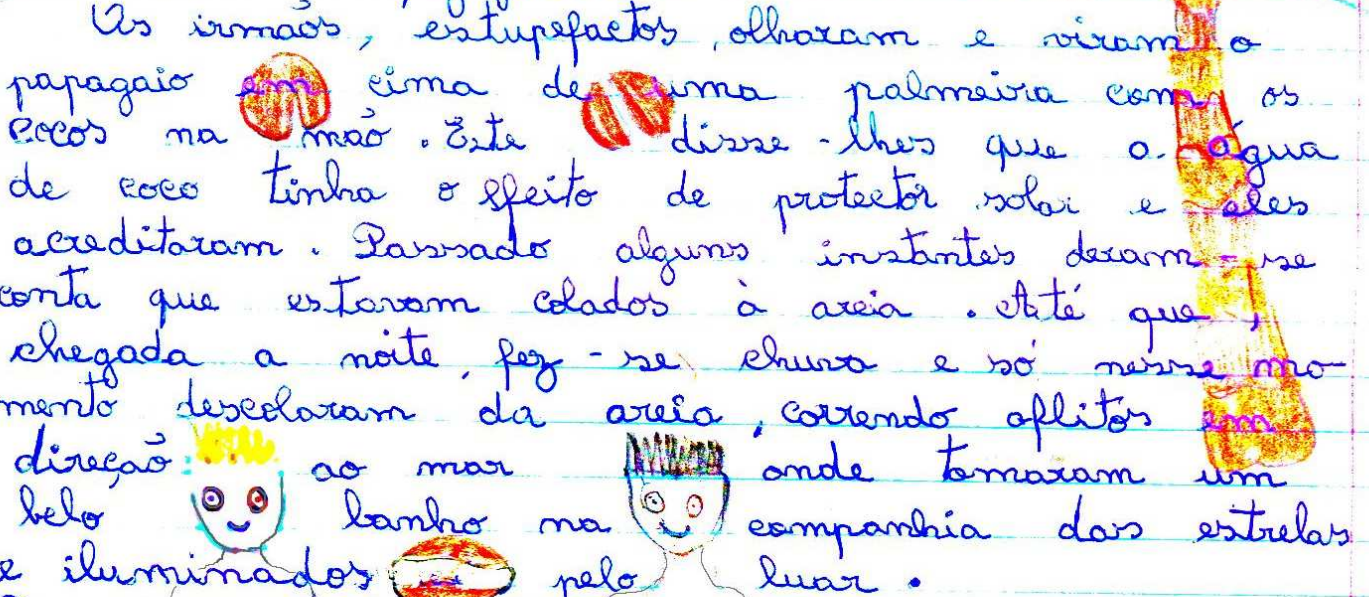 Os irmãos, estupefactos, olharam e viram o
papagaio em cima de uma palmeira com os
cocos na mão. Este disse-lhes que a água
de coco tinha o efeito de protector solar e eles
acreditaram. Passado alguns instantes deram-se
conta que estavam colados à areia. Até que,
chegada a noite, fez-se chuva e só nesse mo-
mento descolaram da areia, correndo aflitos em
direção ao mar onde tomaram um
belo banho na companhia das estrelas
e iluminados pelo luar.